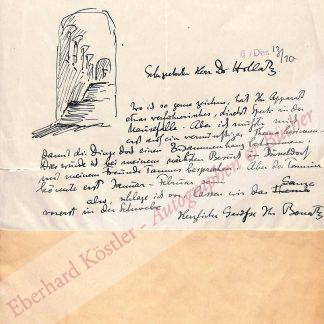 6. Dez. 13/70
Sehr geehrter Herr Dr. Hollatz
wo ist so gerne zeichne, hat Ihr Apparat
etwas verführerisches, direkt Speck in der
Mausefalle. Aber ich müsste mal
erst auf ein vernünftiges Thema kommen
damit die Dinge doch einen Zusammenhang bekommen.
Das würde ich bei meinem nächsten Besuch in Düsseldorf
mit meinem Freunde Tamms besprechen. Aber die Termine
könnte erst Januar - Februar sein.
also, schlage ich vor lassen wir das Ganze
vorerst in der Schwebe.
Herzliche Grüße Ihr Bonatz
Eberhard Köstler - Autographen & Bücher